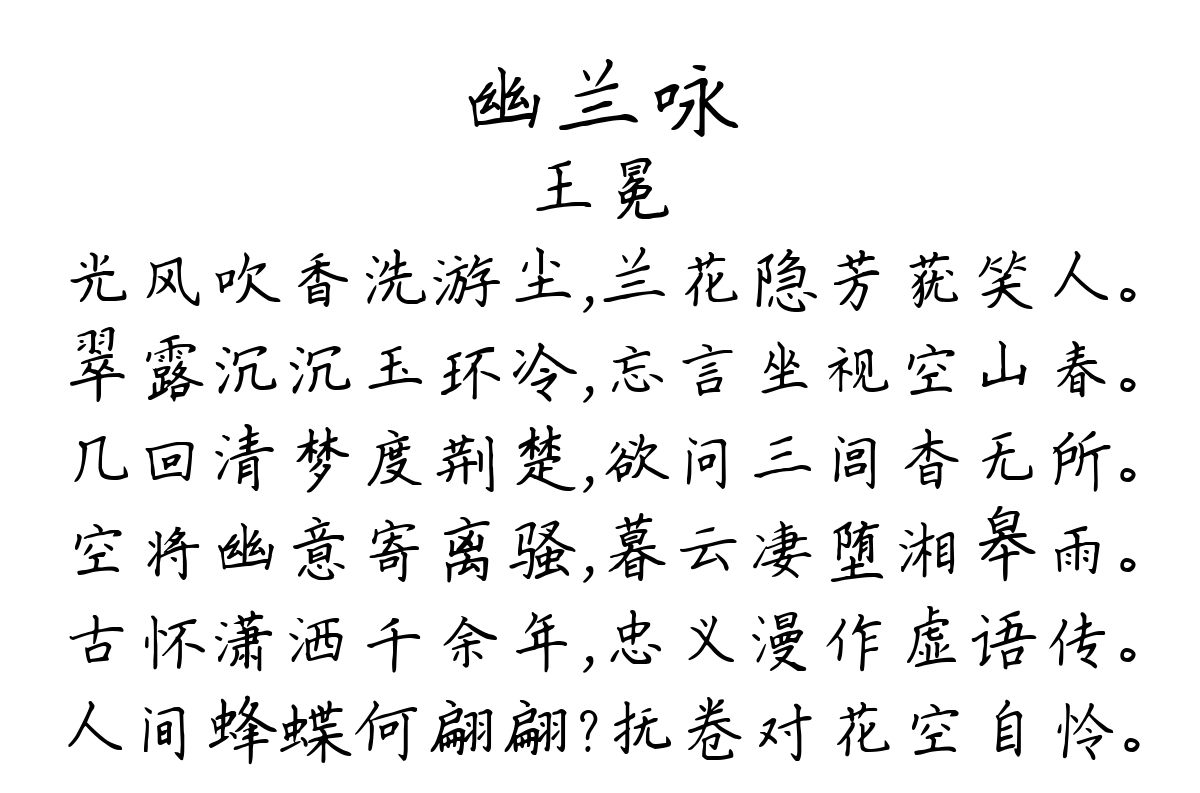 幽兰咏
王冕
光风吹香洗游尘,兰花隐芳莸笑人。
翠露沉沉玉环冷,忘言坐视空山春。
几回清梦度荆楚,欲问三闾杳无所。
空将幽意寄离骚,暮云凄堕湘皋雨。
古怀潇洒千余年,忠义漫作虚语传。
人间蜂蝶何翩翩?抚卷对花空自怜。